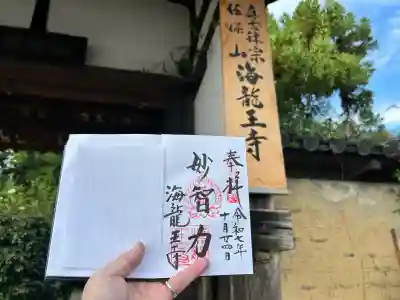 真言律宗
佐保山 海龍王寺
奉拝
令和七年
十月廿四日
妙智力
海龍王寺